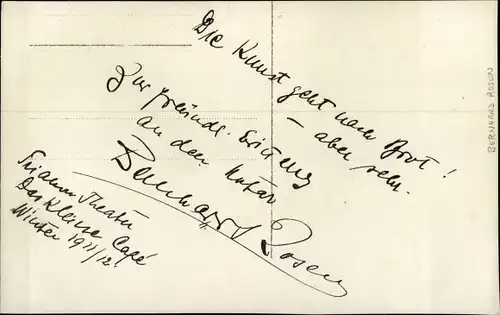 Die Kunst geht nach Brot!
– aber sehr.
Zur freundl. Erinnerung
an den
Bernhard Rosen
Trianon Theater
Das kleine Café
Winter 1911/12.
BERNHARD ROSEN